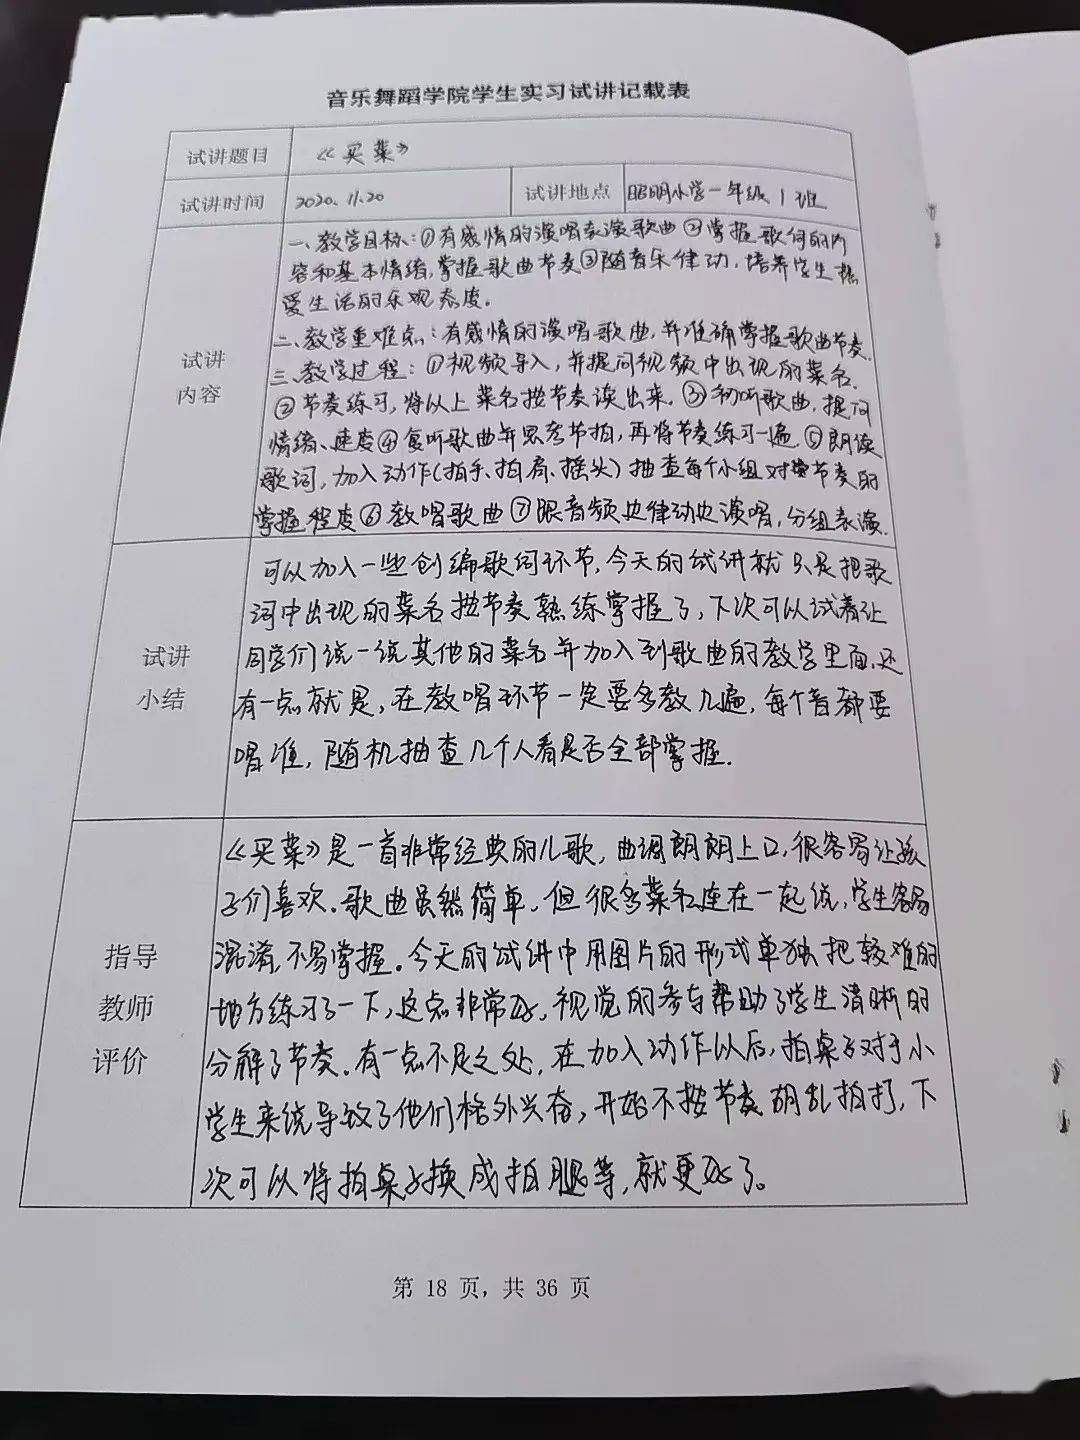 音乐舞蹈学院学生实习试讲记载表
试讲题目 《买菜》
试讲时间 2020.11.20 试讲地点 昭明小学一年级1班
试讲
内容
一、教学目标:①有感情的演唱表演歌曲②掌握歌何的内
容和基本情绪,掌握歌曲节奏③随音乐律动,培养学生热
爱生活的乐观态度。
二、教学重难点:有感情的演唱歌曲,并准确掌握歌曲节奏.
三、教学过程:①视频导入,并提问视频中出现的菜名.
②节奏练习,将以上菜名按节奏读出来.③初听歌曲,提问
情绪、速度④复听歌曲并思考节拍,再将节奏练习一遍⑤朗读
歌词,加入动作(拍手、拍肩、摇头)抽查每个小组对按节奏的
掌握程度⑥教唱歌曲⑦跟音频边律动边演唱,分组表演.
试讲
小结
可以加入一些创编歌词环节,今天的试讲就只是把歌
词中出现的菜名按节奏熟练掌握了,下次可以试着让
同学们说一说其他的菜名并加入到歌曲的教学里面,还
有一点就是,在教唱环节一定要多教几遍,每个音都要
唱准,随机抽查几个人看是否全部掌握.
指导
教师
评价
《买菜》是一首非常经典的儿歌,曲调朗朗上口,很容易让孩
子们喜欢.歌曲虽然简单,但很多菜名连在一起统,学生容易
混淆,不易掌握.今天的试讲中用图片的形式单独把较难的
地方练习了一下,这点非常好,视觉的参与帮助了学生清晰的
分解了节奏.有一点不足之处,在加入动作以后,拍桌子对于小
学生来说导致了他们格外兴奋,开始不按节奏胡乱拍打,下
次可以将拍桌子换成拍腿等,就更好了。
第 18 页,共 36 页